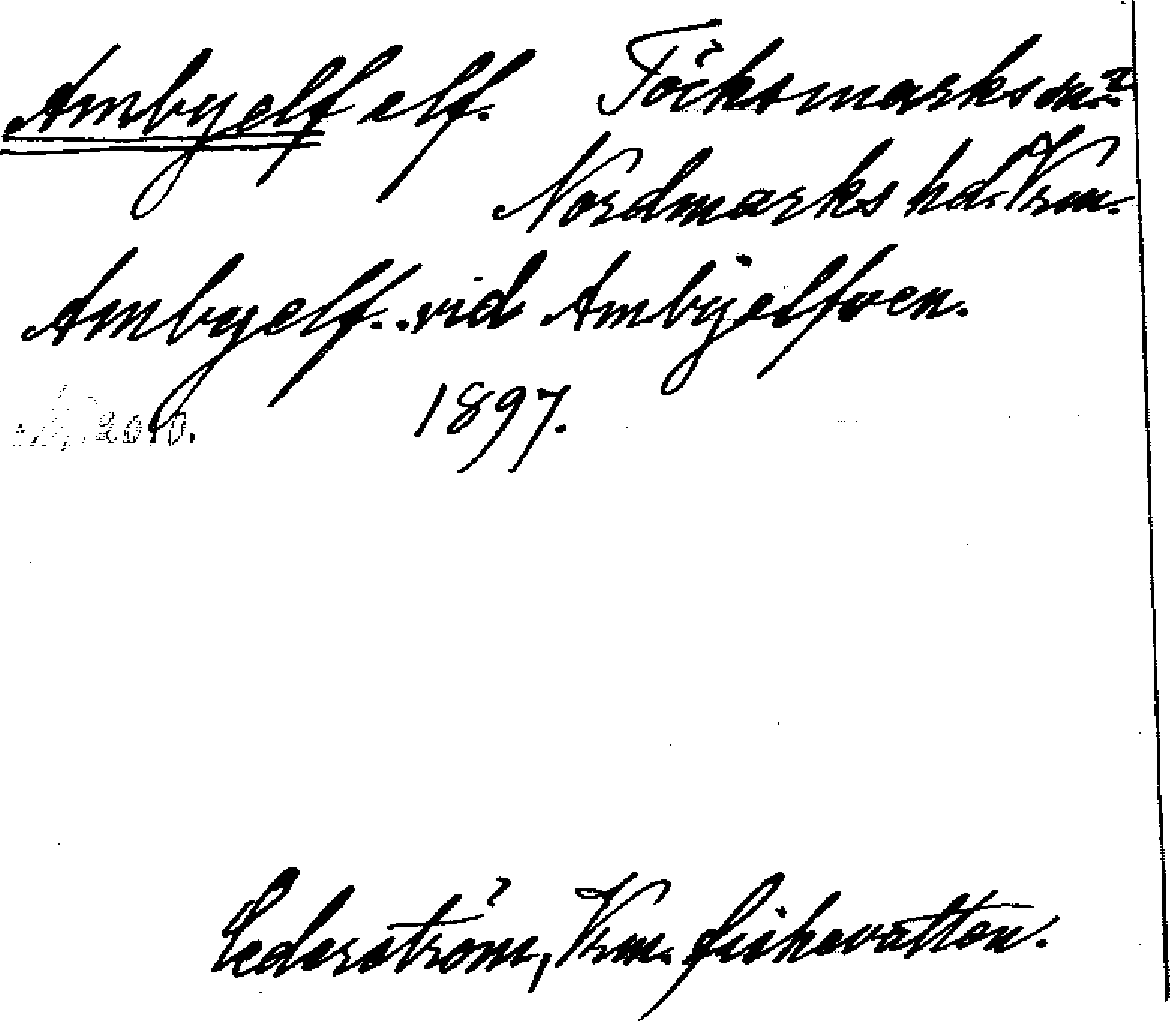 Ambyelf elf. Töcksmarks sn?
Nordmarks hd. Vrm.
Ambyelf..vid Ambyelfven.
1897.
2010.
Cederström, Vrm. fiskevatten.